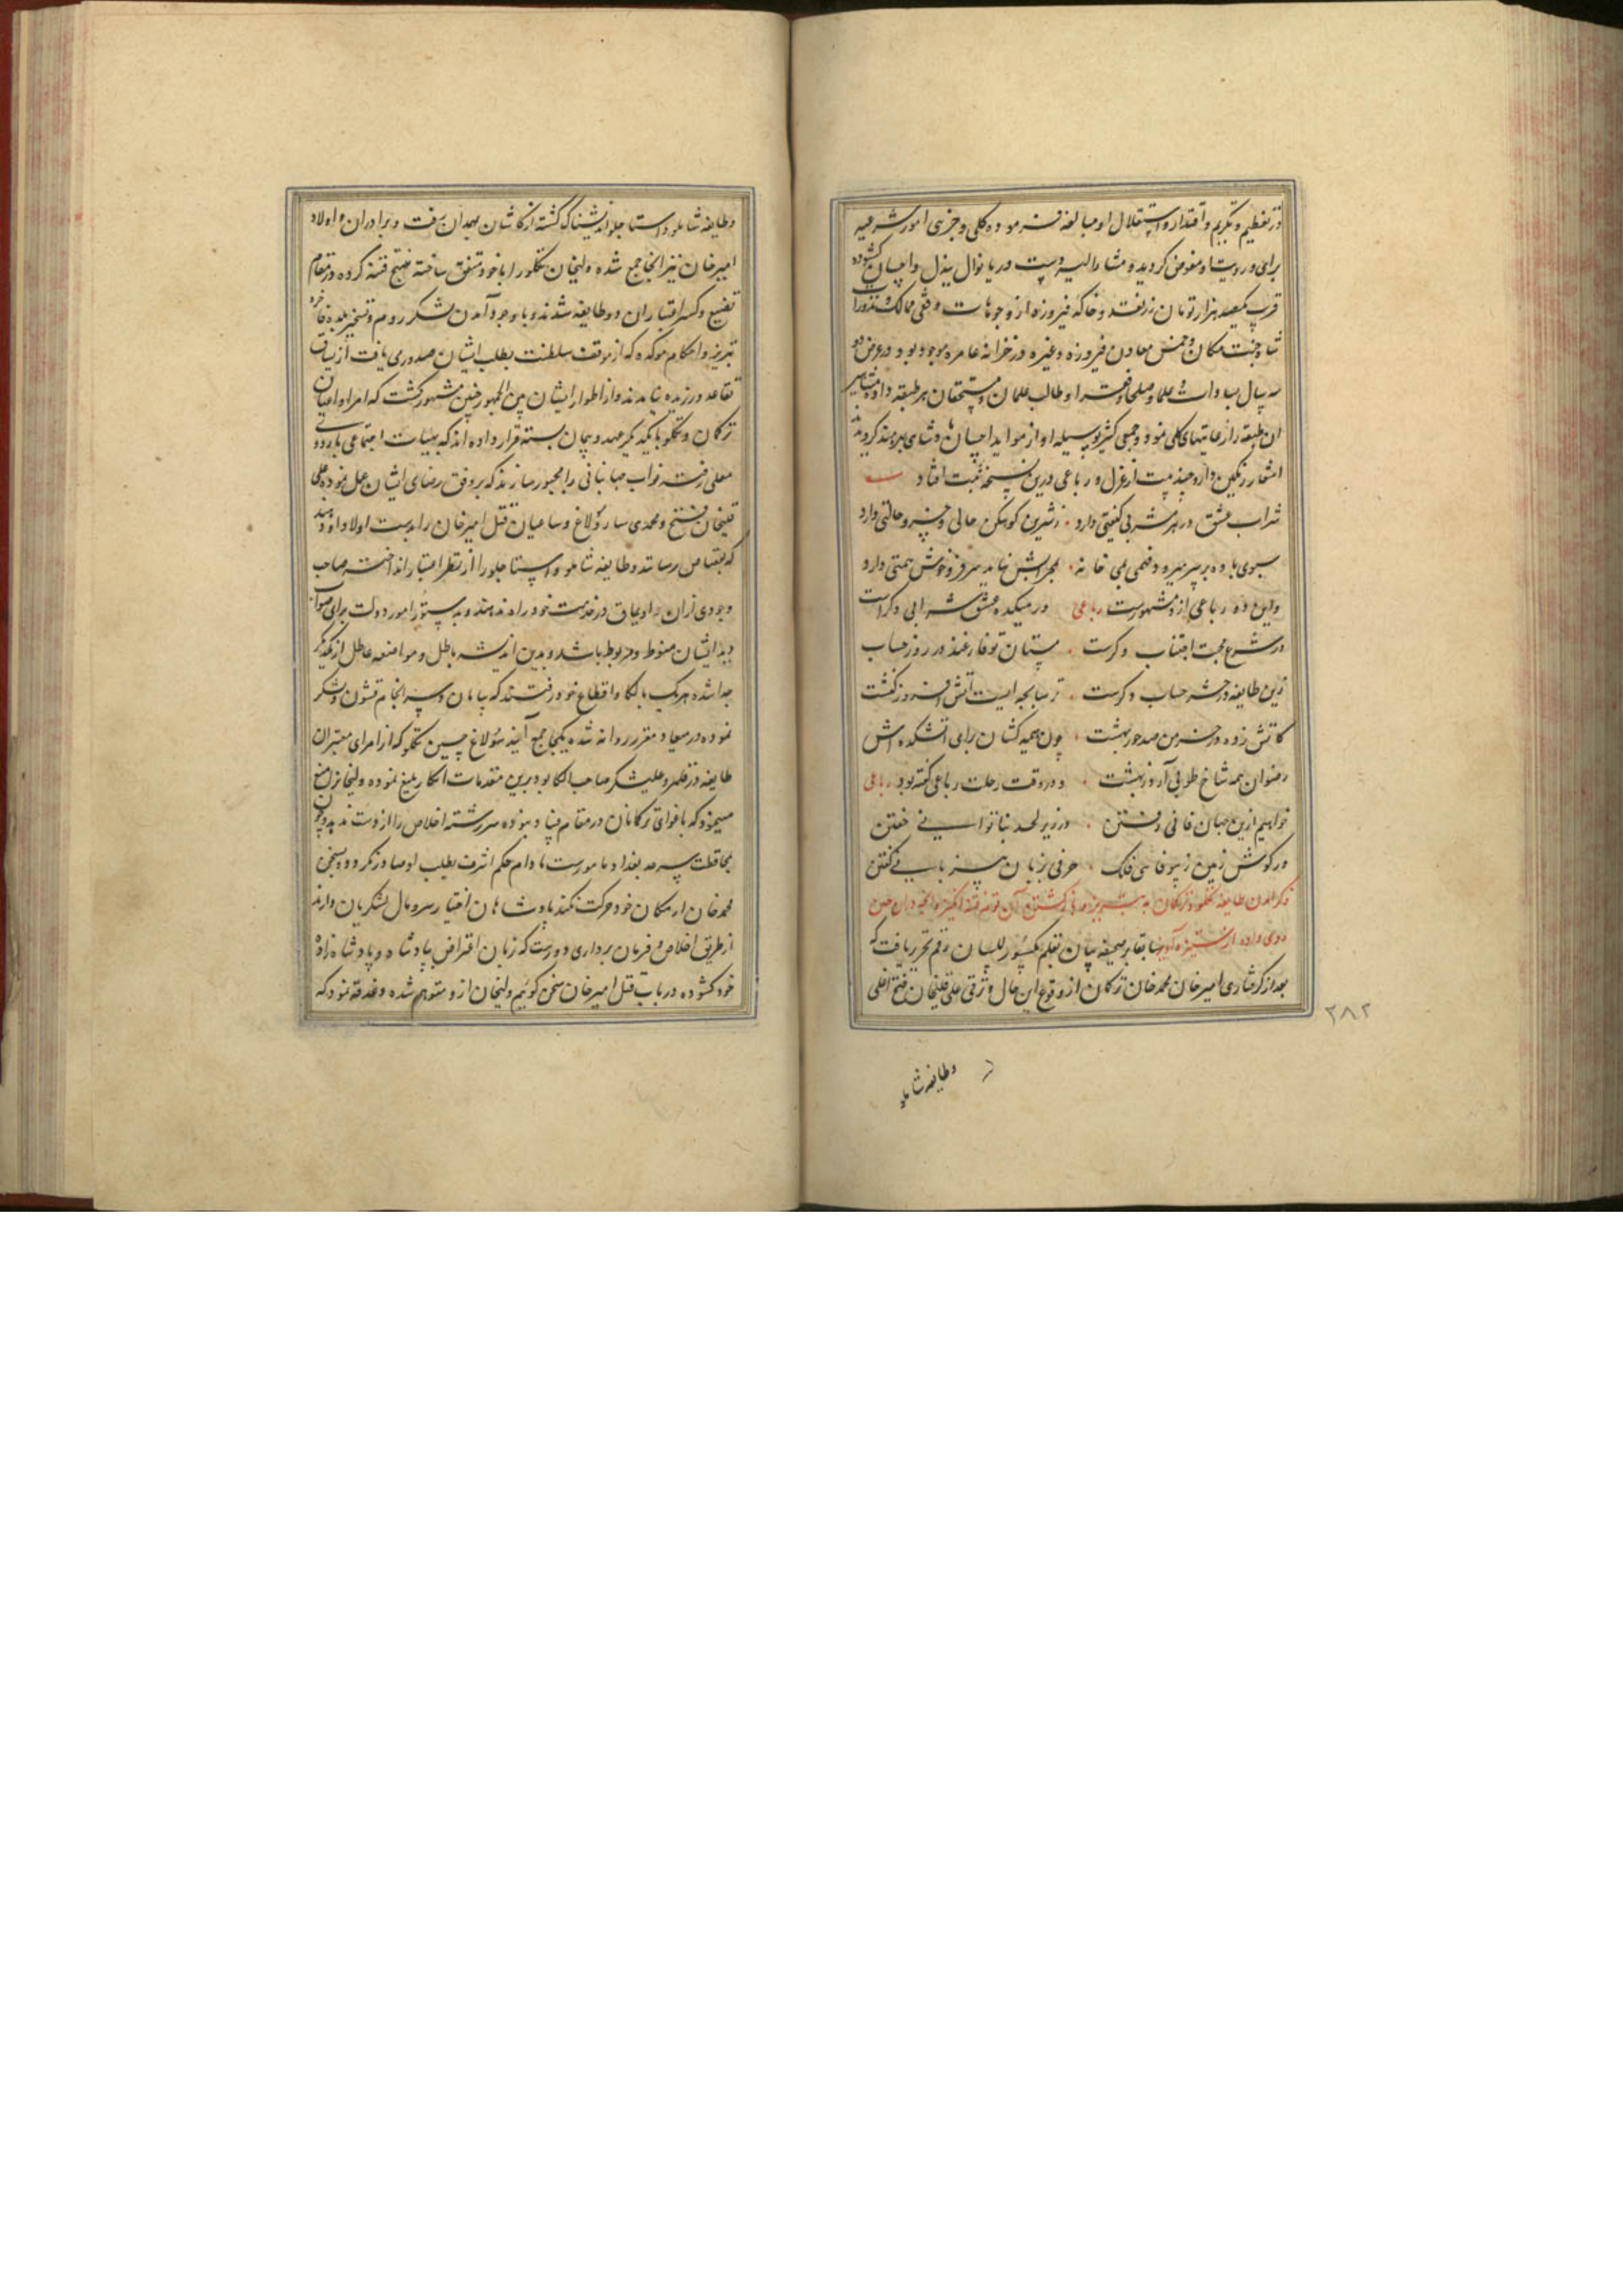 در تعظیم و تکریم و اقتدار و استقلال او مبالغه فرموده کلی و جزئی امور شرعیه
برای و رویت او مفوض گردید و مشارالیه دست دریا نوال ببذل و احسان گشوده
قریب یکصد هزار تومان زر نقد و خاکه فیروزه از وجوهات وقفی ممالک و نذورات
شاه جنت مکان و خمس معادن فیروزه و غیره در خزانه عامره موجود بود در عرض دو
سه سال بسادات و علما و صلحا و فقرا و طالب علمان و مستحقان هر طبقه داده مشاهیر
آن طبقه را رعایتهای کلی نمود و جمعی کثیر بوسیله او از مواید احسان شاهی بهره‌مند گردیدند
اشعار رنگین دارد چند بیت از غزل و رباعی درین نسخه ثبت افتاد
شراب عشق در هر مشربی کیفیتی دارد ز شیرین کوهکن حالی و خسرو حالتی دارد
سبوی باده بر سر میرود فهمی بمی خانه
واین دو رباعی ازو مشهورست رباعی در میکده عشق شرابی دگرست
در شرع محبت اجتناب دگرست مستان تو فارغند در روز حساب
زین طایفه در حشر حساب دگرست ترسابچه ایست آتش افروز کنشت
کاتش زده در خرمن صد حور بهشت چون هیمه کشان برای آتشکده اش
رضوان همه شاخ طوبی آرد ز بهشت و در وقت رحلت رباعی گفته بود رباعی
خواهیم ازین جهان فانی رفتن در زیر لحد بناتوانی خفتن
در گوش زمین ز بیوفائی فلک حرفی بزبان بیزبانی گفتن
ذکر آمدن طایفه تکلو و ترکمان به تبریز
سابقا بر صحیفه بیان بقلم مکسور اللسان رقم تحریر یافت که
بعد از گرفتاری امیر خان محمد خان ترکمان از وقوع این حال و ترقی علی قلیخان فتح اغلی
۲۸۲
وطایفه شاملو
وطایفه شاملو و استاجلو اندیشناک گشته از کاشان بهمدان رفت و برادران و اولاد
امیر خان نیز انجا جمع شده ولیخان تکلو را با خود متفق ساخته فتح فتنه کرده در مقام
تضییع و کسر اعتبار آن دو طایفه شدند و با وجود آمدن لشکر روم و تسخیر بلده فاخره
تبریز و احکام موکده که از موقف سلطنت بطلب ایشان صدور می یافت از یساق
تقاعد ورزیده نیامدند و از اطوار ایشان بین الجمهور چنین مشهور گشت که امرا و اعیان
ترکمان و تکلو با یکدیگر عهد و پیمان بسته قرار داده اند که بهیات اجتماعی باردوی
معلی رفته نواب جهانبانی را مجبور سازند که بر وفق رضای ایشان عمل نموده علی
قلیخان فتح و محمدی سارو سولاغ و ساعیان قتل امیر خان را بدست اولاد او دهد
که بقصاص رسانند و طایفه شاملو و استاجلو را از نظر اعتبار انداخته صاحب
وجودی از ان دو اویماق در خدمت خود راه ندهند و بدستور امور دولت برای صواب
دید ایشان منوط و مربوط باشد و بدین اندیشه باطل و مواضعه عاطل از یکدیگر
جدا شده هر یک بالکا و اقطاع خود رفتند که سامان و سرانجام قشون و لشکر
نموده در میعاد مقرر روانه شده یکجا جمع آیند سولاغ حسین تکلو که از امرای معتبر آن
طایفه در قلمرو علیشکر صاحب الکا بود برین مقدمات انکار بلیغ نموده ولیخانرا منع
مینمود که باغوای ترکمانان در مقام فساد نبوده سررشته اخلاص را از دست ندهد و چون
بمحافظت سرحد بغداد مامورست مادام حکم اشرف بطلب او صادر نگردد و بسخن
محمد خان از مکان خود حرکت نکند پادشاهان اختیار سر و مال لشکریان دارند
از طریق اخلاص و فرمان برداری دورست که زبان اعتراض بپادشاه و پادشاه زاده
خود گشوده در باب قتل امیر خان سخن گوئیم ولیخان ازو متوهم شده دغدغه نمود که